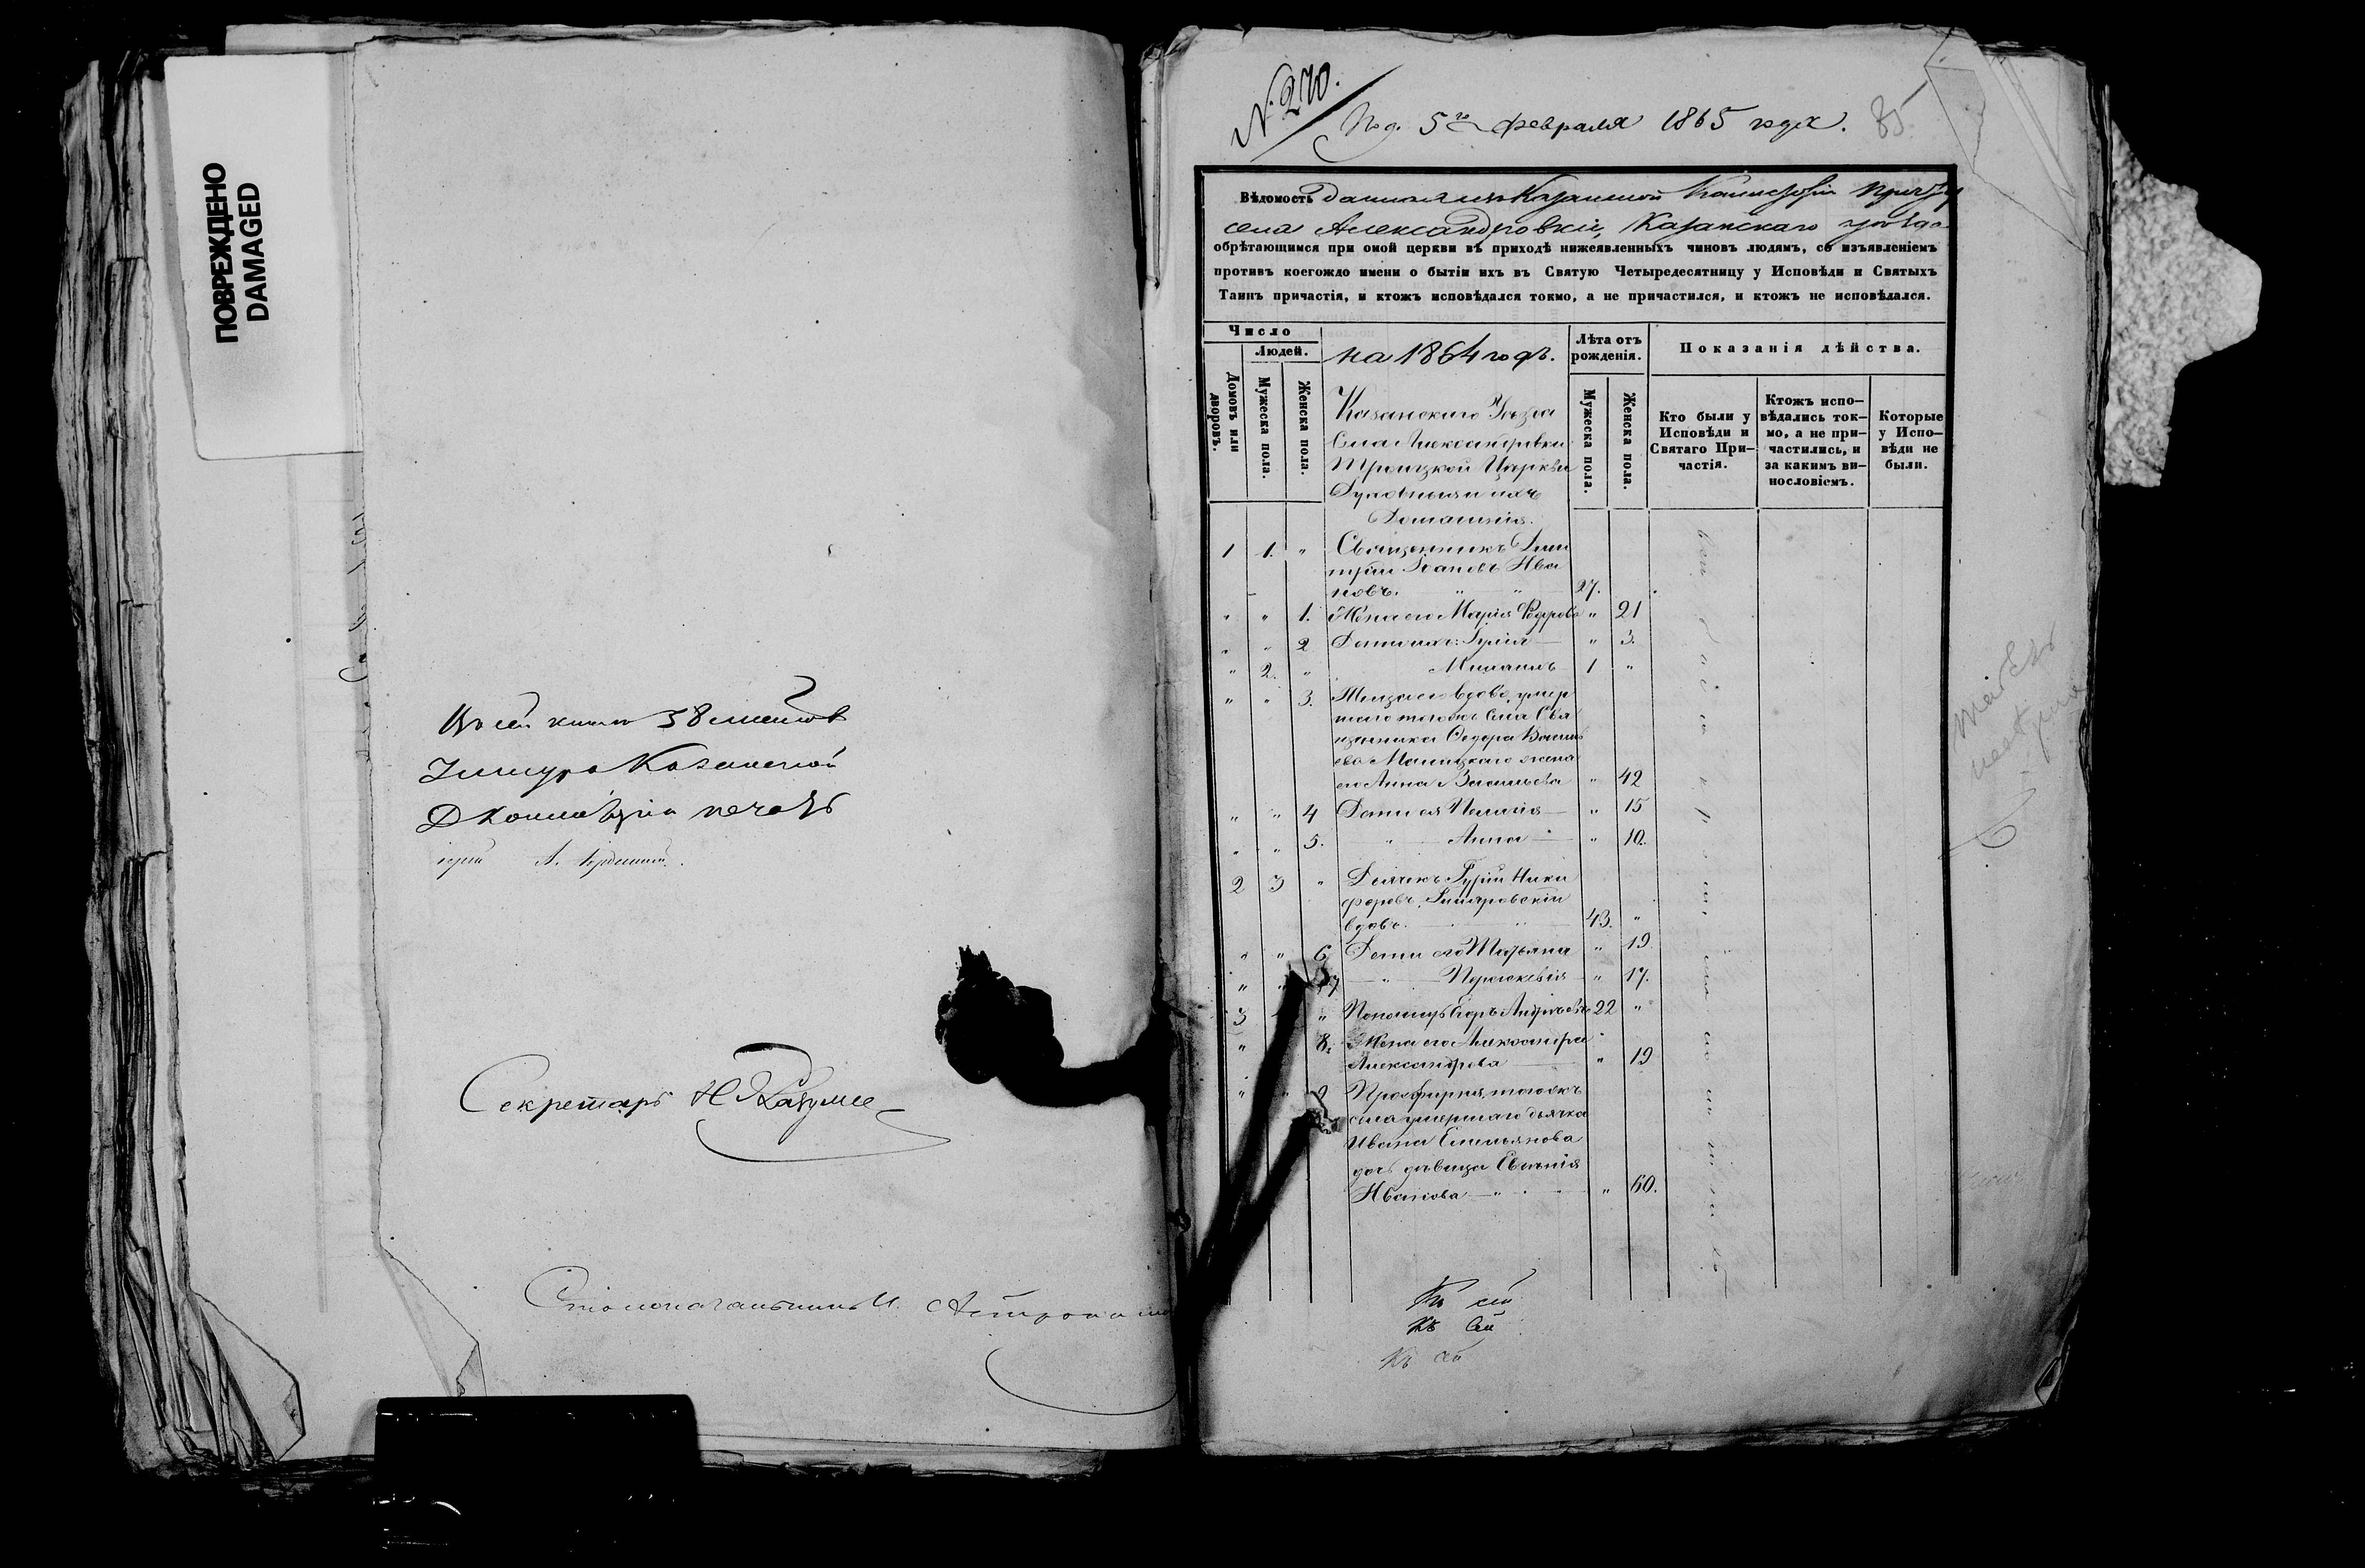 ПОВРЕЖДЕНО
DAMAGED
38 листовъ
Казанской
Д Консисторіи печать
іерей А.
Секретарь Н. Разумов
Столоначальникъ И.
№ 270.
Под. 5го февраля 1865 года.
85
Вѣдомость данная изъ Казанской Консисторіи причту
села Александровки, Казанскаго уѣзда
обрѣтающимся при оной церкви въ приходѣ нижеявленныхъ чиновъ людямъ, со изъявленіемъ
противъ коегождо имени о бытіи ихъ въ Святую Четыредесятницу у Исповѣди и Святыхъ
Таинъ причастія, и ктожъ исповѣдался токмо, а не причастился, и ктожъ не исповѣдался.
Число
Людей.
Домовъ или дворовъ.
Мужеска пола.
Женска пола.
на 1864 годъ.
Лѣта отъ
рожденія.
Мужеска пола.
Женска пола.
Показанія дѣйства.
Кто были у
Исповѣди и
Святаго При-
частія.
Ктожъ испо-
вѣдались ток-
мо, а не при-
частились, и
за какимъ ви-
нословіемъ.
Которые
у Испо-
вѣди не
были.
Казанскаго Уѣзда
Села Александровки
Троицкой Церкви
Духовныя и ихъ
Домашнія.
1 1. " Священникъ Дими
трій Іоановъ Ива
новъ. " " 27.
" " 1. Жена его Марія Ѳедорова " 21
" " 2 Дети ихъ: " 3.
" 2. " Михаилъ 1 "
" " 3. Теща его вдова, умер
шаго тогожъ села Свя
щенника Ѳедора Василь
ева жена
его Анна Васильева " 42
" " 4 Дети ея Пелагія " 15
" " 5. " Анна " 10.
2 3 " Дьячекъ Гурій Ники
форовъ
вдовъ. 43. "
" " 6 Дети его Татьяна " 19.
" " 7 " Параскевія " 17.
3 " Пономарь Егоръ Андреевъ 22 "
" 8. Жена его Александра
Александрова " 19
" " 9 Просфирня, тогожъ
села умершаго дьячка
Ивана Емельянова
дочь дѣвица Евгенія
Иванова " " 60.
Къ сей
Къ сей
Къ сей